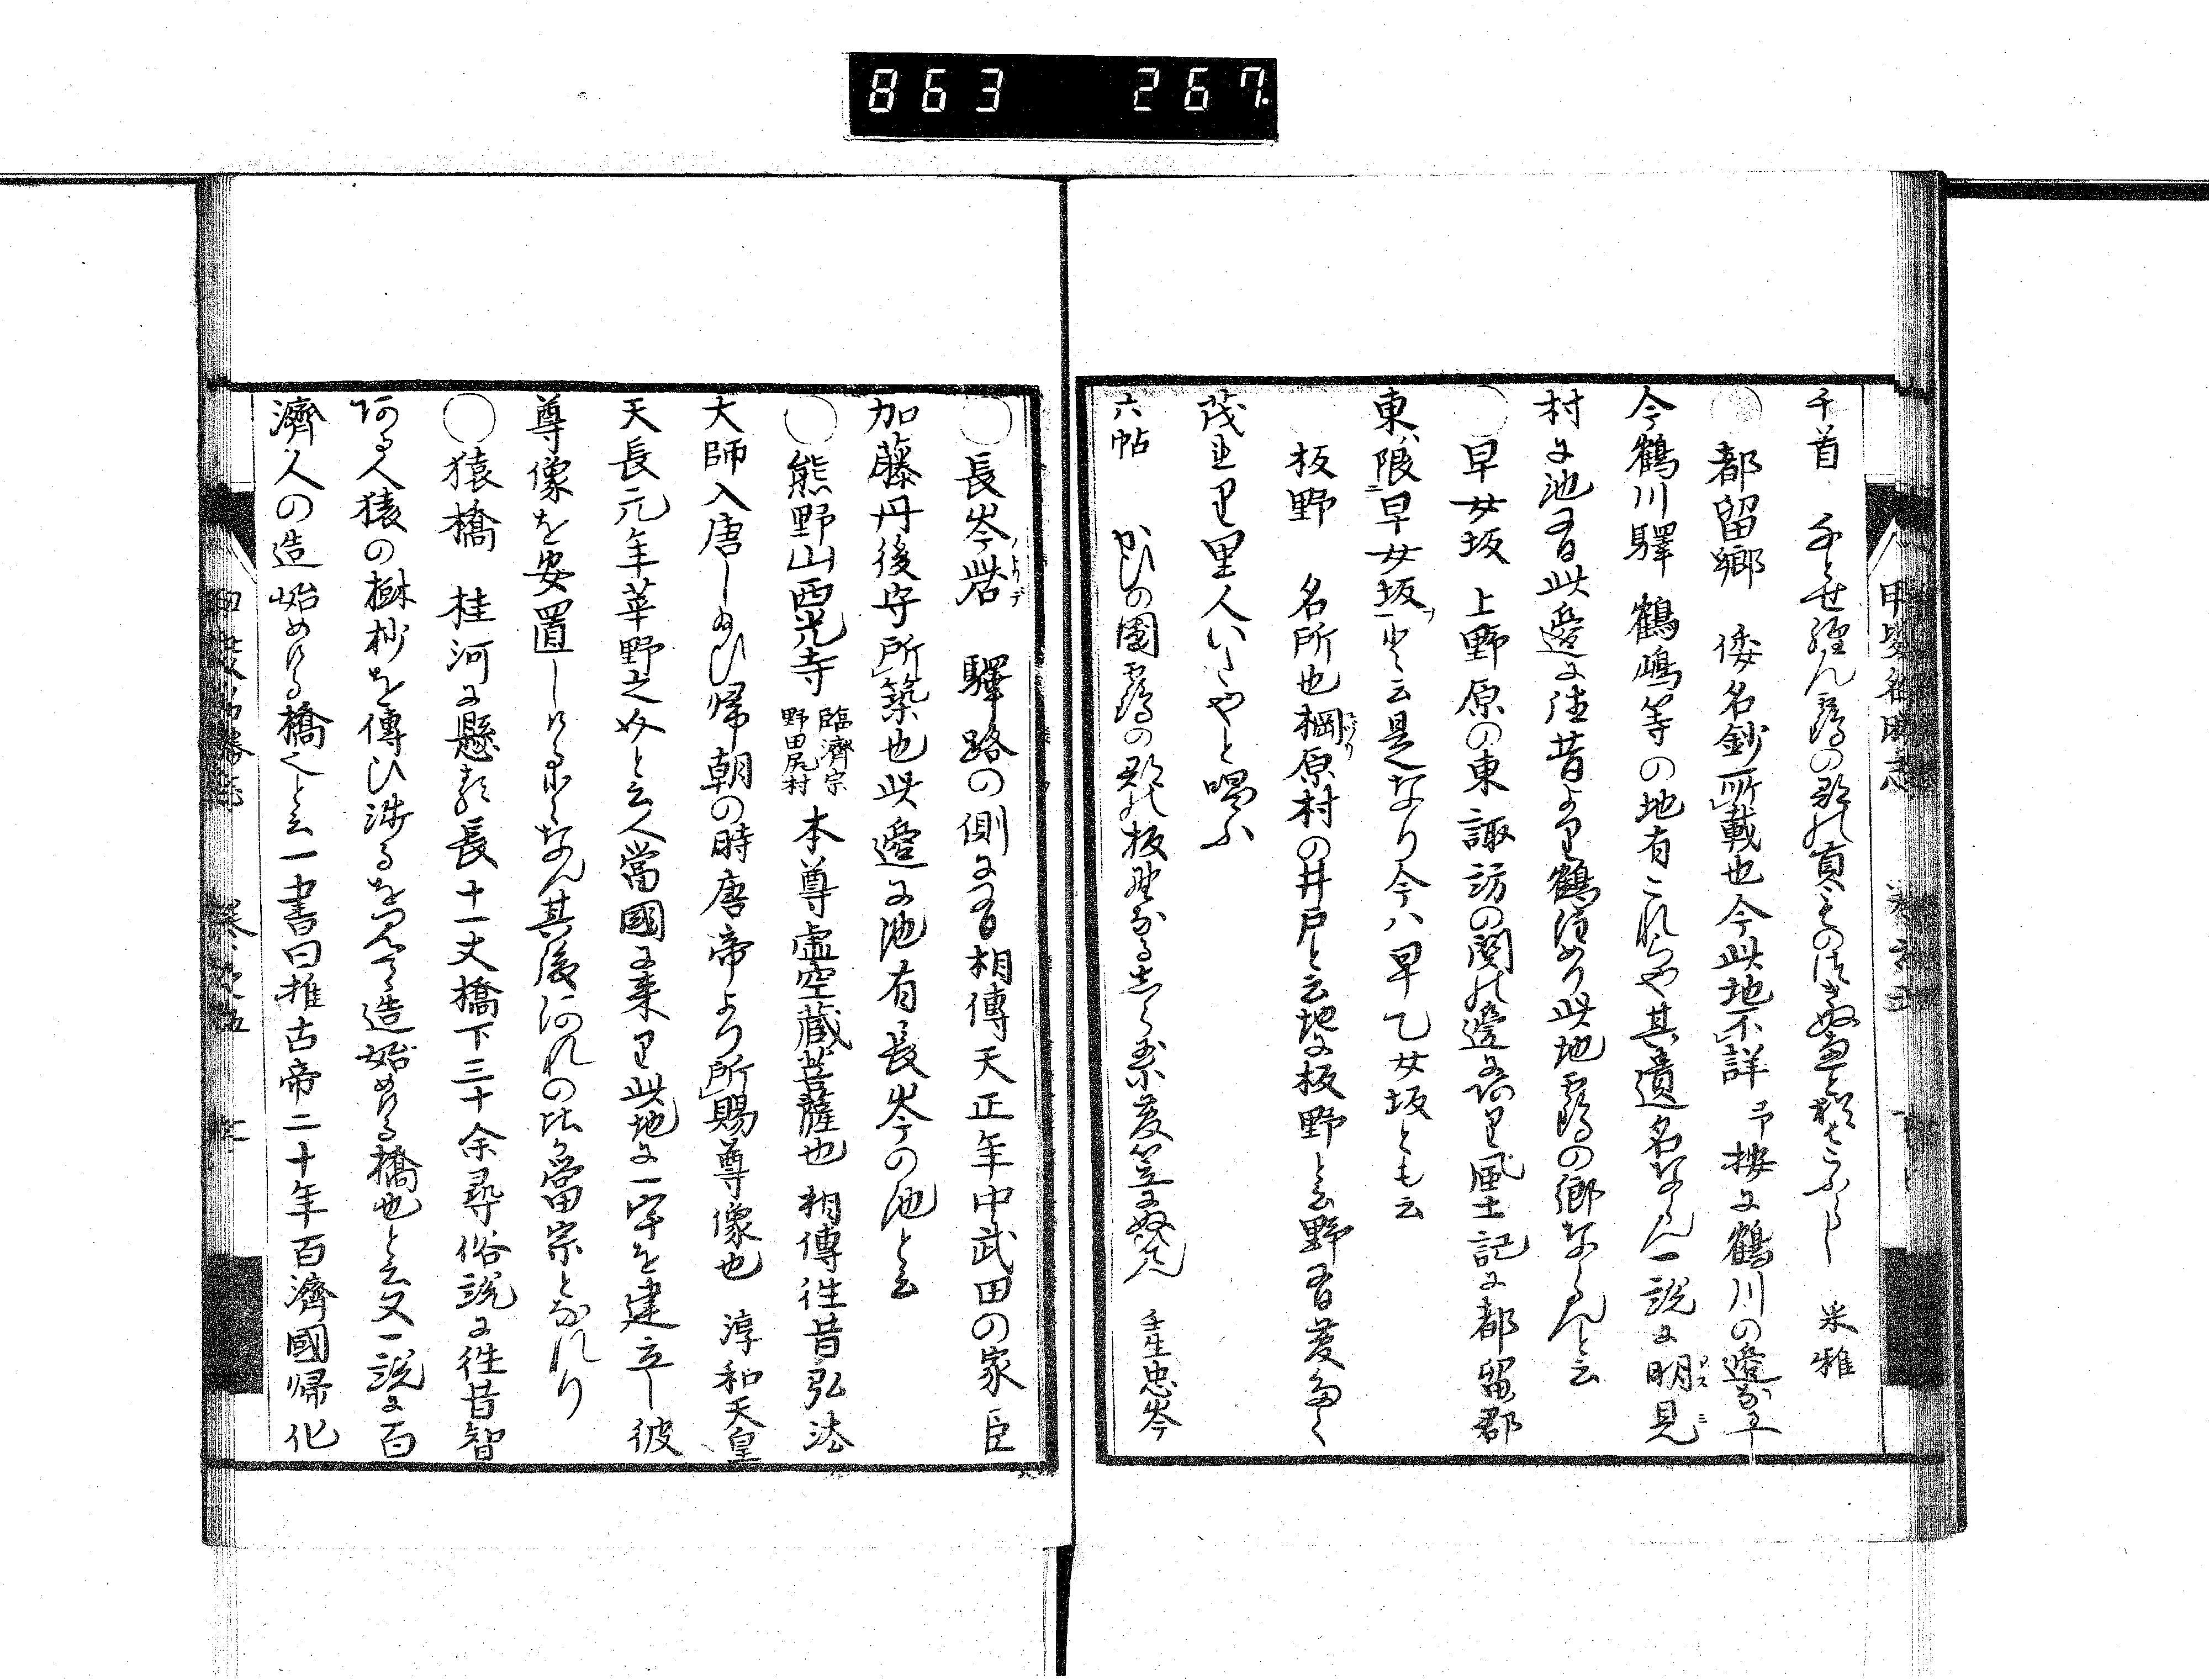 863 267
千首 千とせ經ん靏の郡の貢ものつきぬ
米雅
○都留郷 倭名鈔所載也今此地不詳予按に鶴川の邉なる
今鶴川驛鶴嶋等の地有これらや其遺名ならん一説に明見
村に池有此邉に往昔より鶴住めり此地靏の郷なるらんと云
○早女坂 上野原の東諏訪の関の邉に有り風土記に都留郡
東ハ限ニ早女坂ヲと云是なり今ハ早乙女坂とも云
板野 名所也棡原村の井戸と云地に板野と云野有菱多く
茂れり里人いたやと唱ふ
六帖 かひの國靏の郡の板野なるしら玉菱笠にぬはん 壬生忠岑
○長岑砦 驛路の側に有相傳天正年中武田の家臣
加藤丹後守所築也此邉に池有長岑の池と云
○熊野山西光寺 臨濟宗
野田尻村 本尊虚空蔵菩薩也相傳往昔弘法
大師入唐し給ひ帰朝の時唐帝より所賜尊像也 淳和天皇
天長元年葦野之奴と云人當國に来り此地に一宇を建立し彼
尊像を安置しけるとなん其後いつれの比か當宗となれり
○猿橋 桂河に懸る長十一丈橋下三十余尋俗説に往昔智
ある人猿の樹杪を傳ひ渉るを見て造始めける橋也と云又一説に百
濟人の造始めける橋之と云一書曰推古帝二十年百濟國帰化
甲斐名勝志